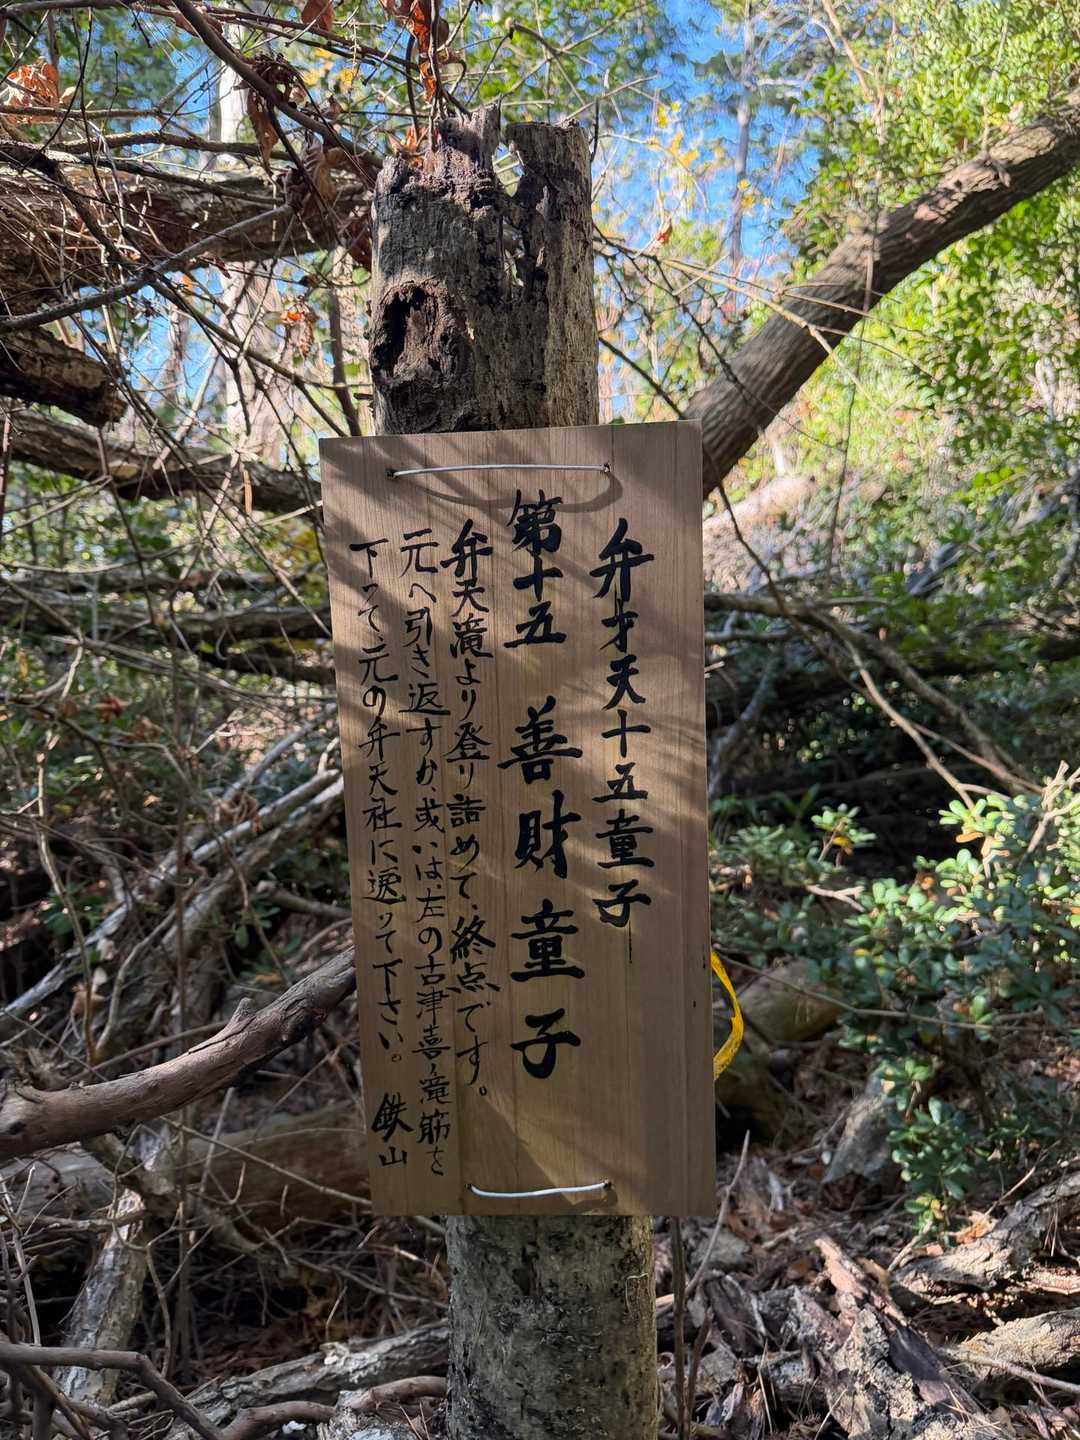 弁才天十五童子
第十五 善財童子
弁天滝より登り詰めて、終点です。
元へ引き返すか、或いは、左の古津喜ノ滝筋を
下って、元の弁天社に戻って下さい。 鉄山